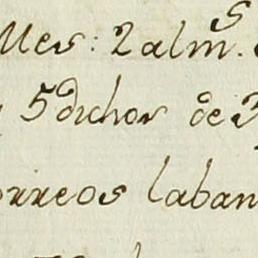 Mes: 2 alm.s
5 dichos de 3
orreos laban